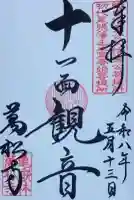 奉拝
令和八年
五月十三日
十一面観音
萬松寺